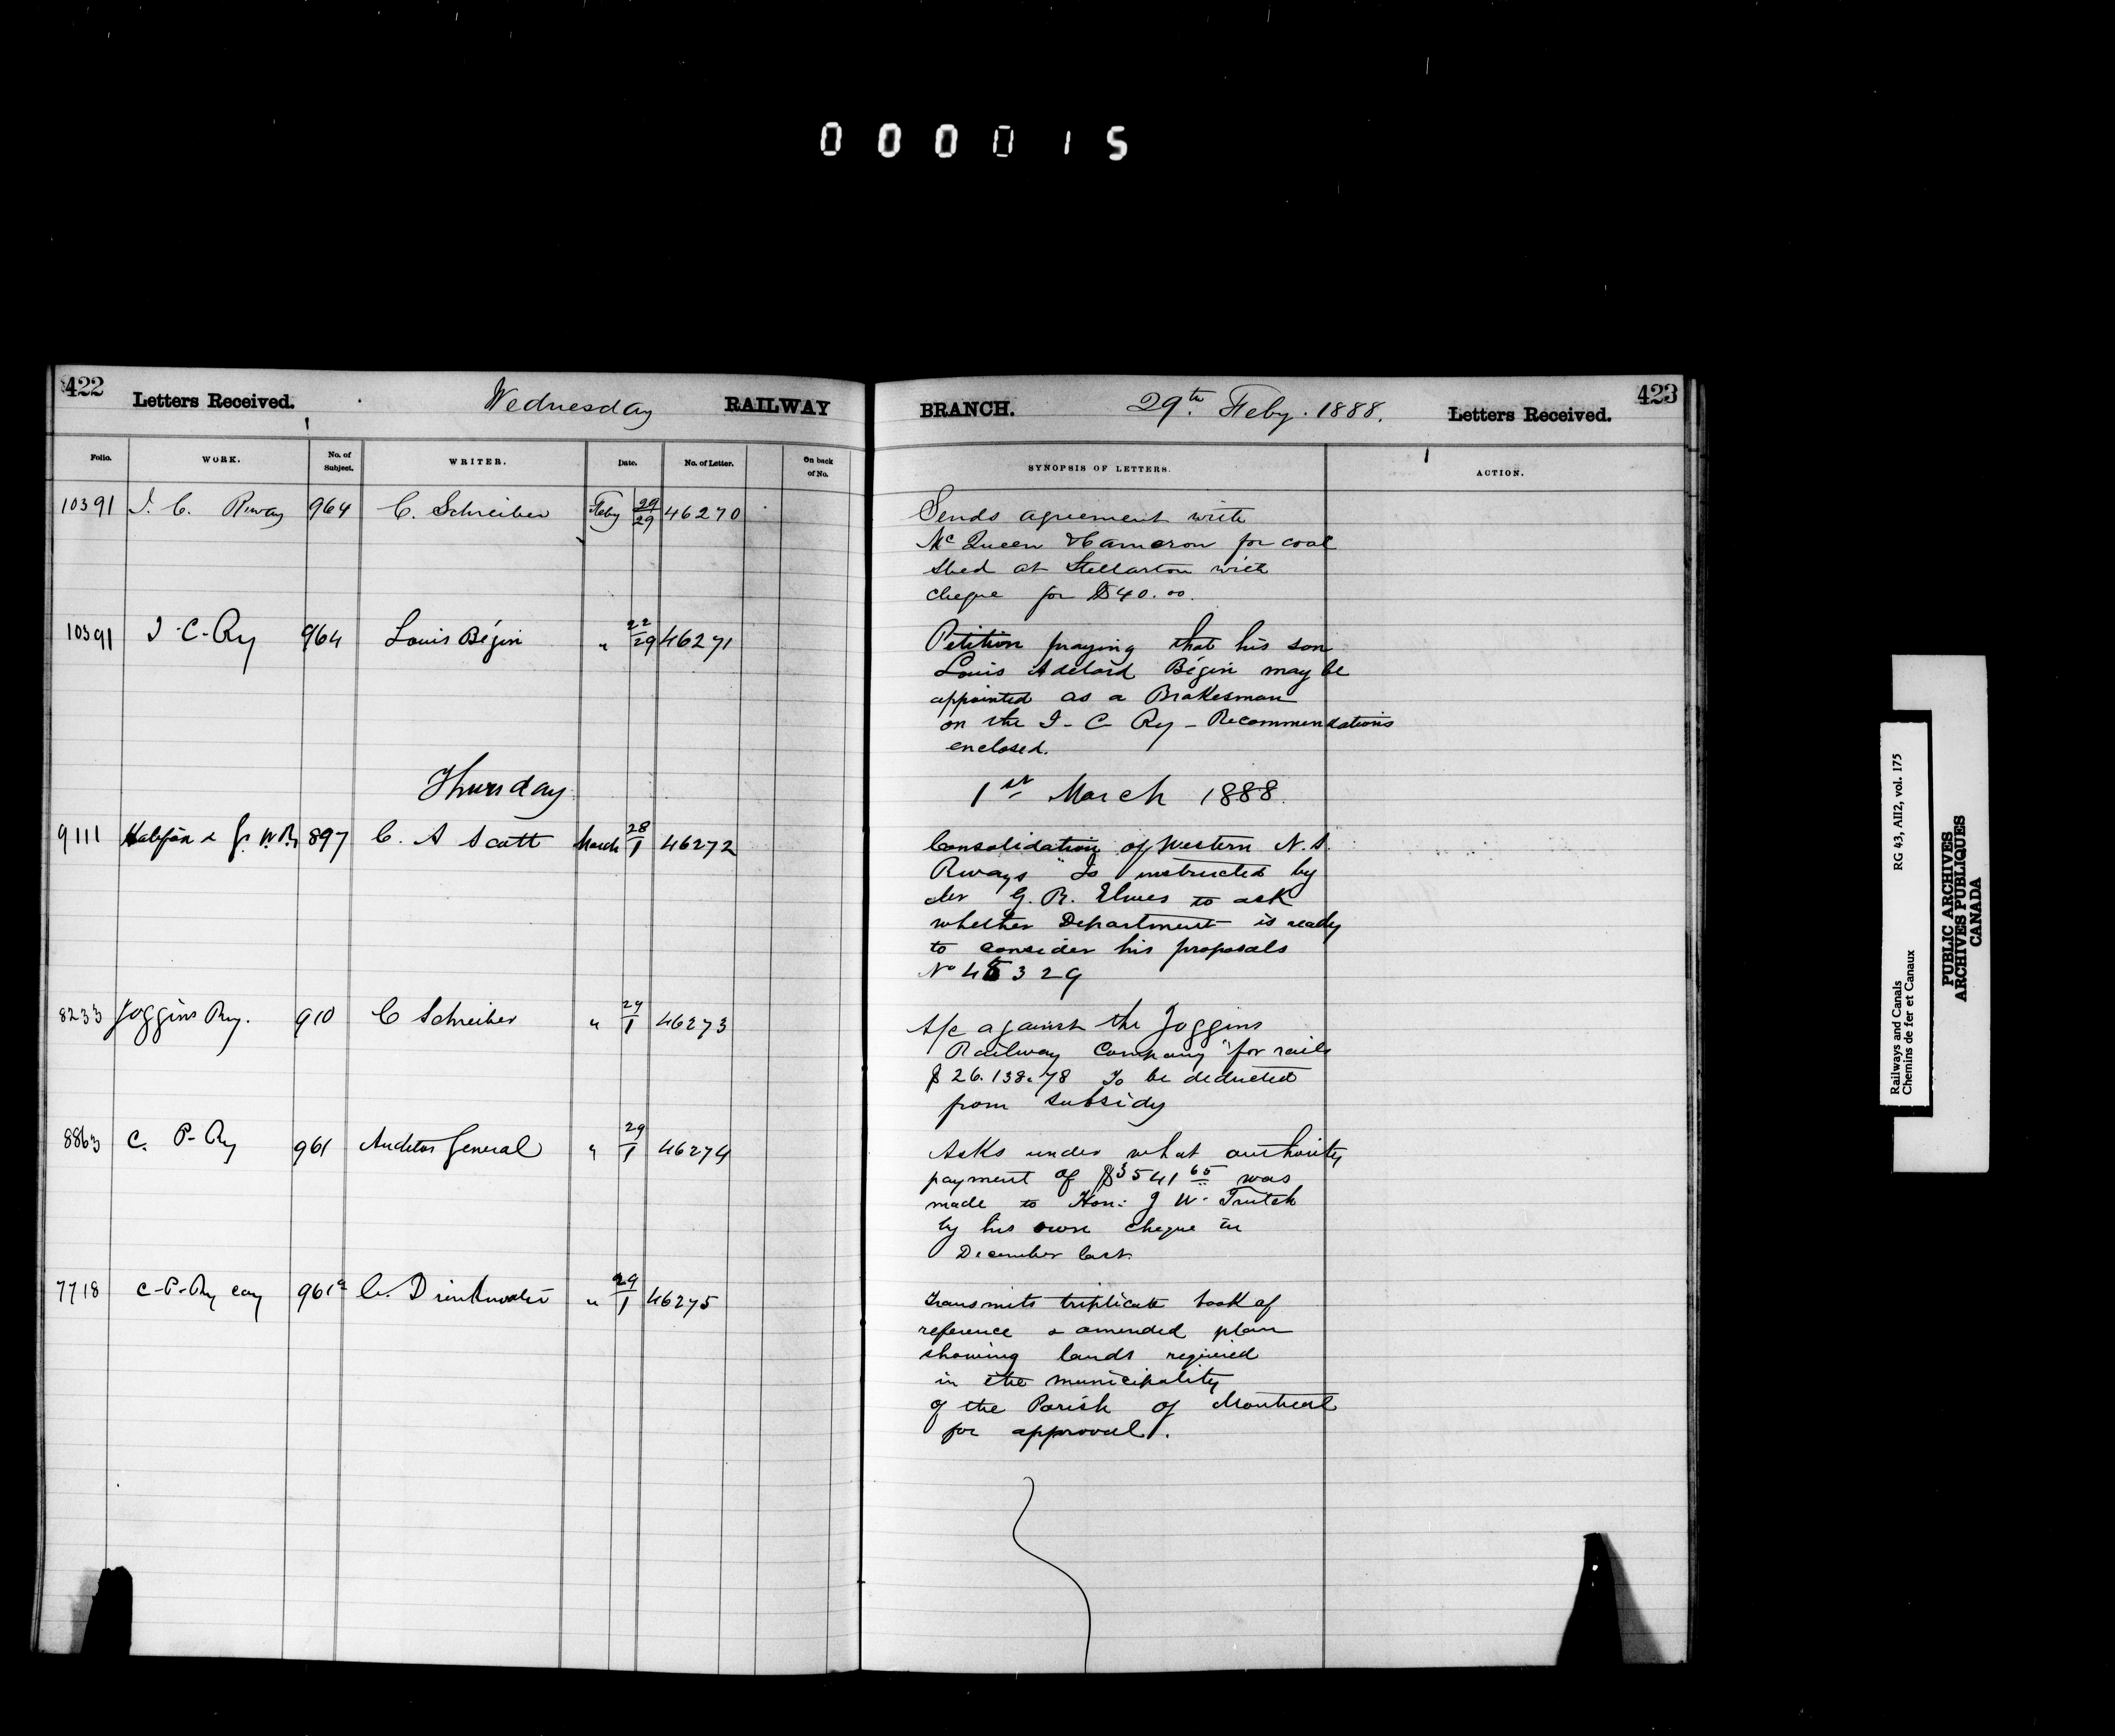 000015
422 Letters Received. Wednesday RAILWAY
Folio. WORK. No. of Subject. WRITER. Date. No. of Letter. On back of No.
10391 I. C. Rway 964 C. Schreiber Feby 29/29 46270
10391 I-C-Ry 964 Louis Bégin " 22/29 46271
Thursday
9111 Halifax & Gt W. Ry 897 C. A Scott March 28/1 46272
8233 Joggins Ry. 910 C Schreiber " 29/1 46273
8863 C. P-Ry 961 Auditor General " 29/1 46274
7718 C-P-Ry Coy 961a C. Drinkwater " 29/1 46275
BRANCH. 29th Feby. 1888. Letters Received. 423
SYNOPSIS OF LETTERS. ACTION.
Sends agreement with
McQueen & Cameron for coal
shed at Stellarton with
cheque for $40.00.
Petition praying that his son
Louis Adelard Bégin may be
appointed as a Brakesman
on the I-C Ry - Recommendations
enclosed.
1st March 1888.
Consolidation of Western N.S.
Rways" Is instructed by
Mr G. R. Elmes to ask
whether Department is ready
to consider his proposals
No 45329
A/c against the Joggins
Railway Company "for rails
$26.138.78 To be deducted
from subsidy
Asks under what authority
payment of $3541 65 was
made to Hon: J W. Trutch
by his own cheque in
December last.
Transmits triplicate book of
reference & amended plan
showing lands required
in the municipality
of the Parish of Montreal
for approval.
Railways and Canals RG 43, AII2, vol. 175
Chemins de fer et Canaux
PUBLIC ARCHIVES
ARCHIVES PUBLIQUES
CANADA